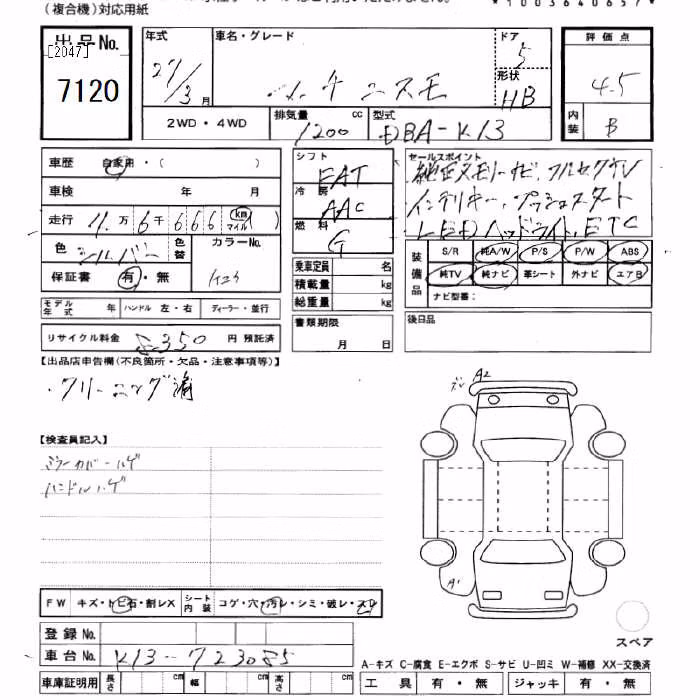 (複合機)対応用紙
*1003640657*
出品No.
[2047]
7120
年式
27/3月
車名・グレード
ドア
5
形状
HB
2WD・4WD
排気量
1200 cc
型式
DBA-K13
評価点
4.5
内装
B
車歴 自家用・( )
車検 年 月
走行 11万6千666 km マイル
色 シルバー 色替 カラーNo.
保証書 有・無 K23
モデル年式 年 ハンドル 左・右 ディーラー・並行
リサイクル料金 8350 円 預託済
シフト
FAT
冷房
AAC
燃料
G
乗車定員 名
積載量 kg
総重量 kg
書類期限
月 日
セールスポイント
純正メモリーナビ、フルセグTV
インテリキー、プッシュスタート
LEDヘッドライト、ETC
装備品
S/R 純A/W P/S P/W ABS
純TV 純ナビ 革シート 外ナビ エアB
ナビ型番:
後日品
【出品店申告欄(不良箇所・欠品・注意事項等)】
・クリーニング済
【検査員記入】
ミラーカバーハゲ
ハンドルハゲ
A2
A1
FW キズ・トビ石・割レX シート内装 コゲ・穴・汚レ・シミ・破レ・スレ
登録No.
車台No. K13-723085
車庫証明用 長さ cm 幅 cm 高さ cm
スペア
A-キズ C-腐食 E-エクボ S-サビ U-凹ミ W-補修 XX-交換済
工具 有・無 ジャッキ 有・無